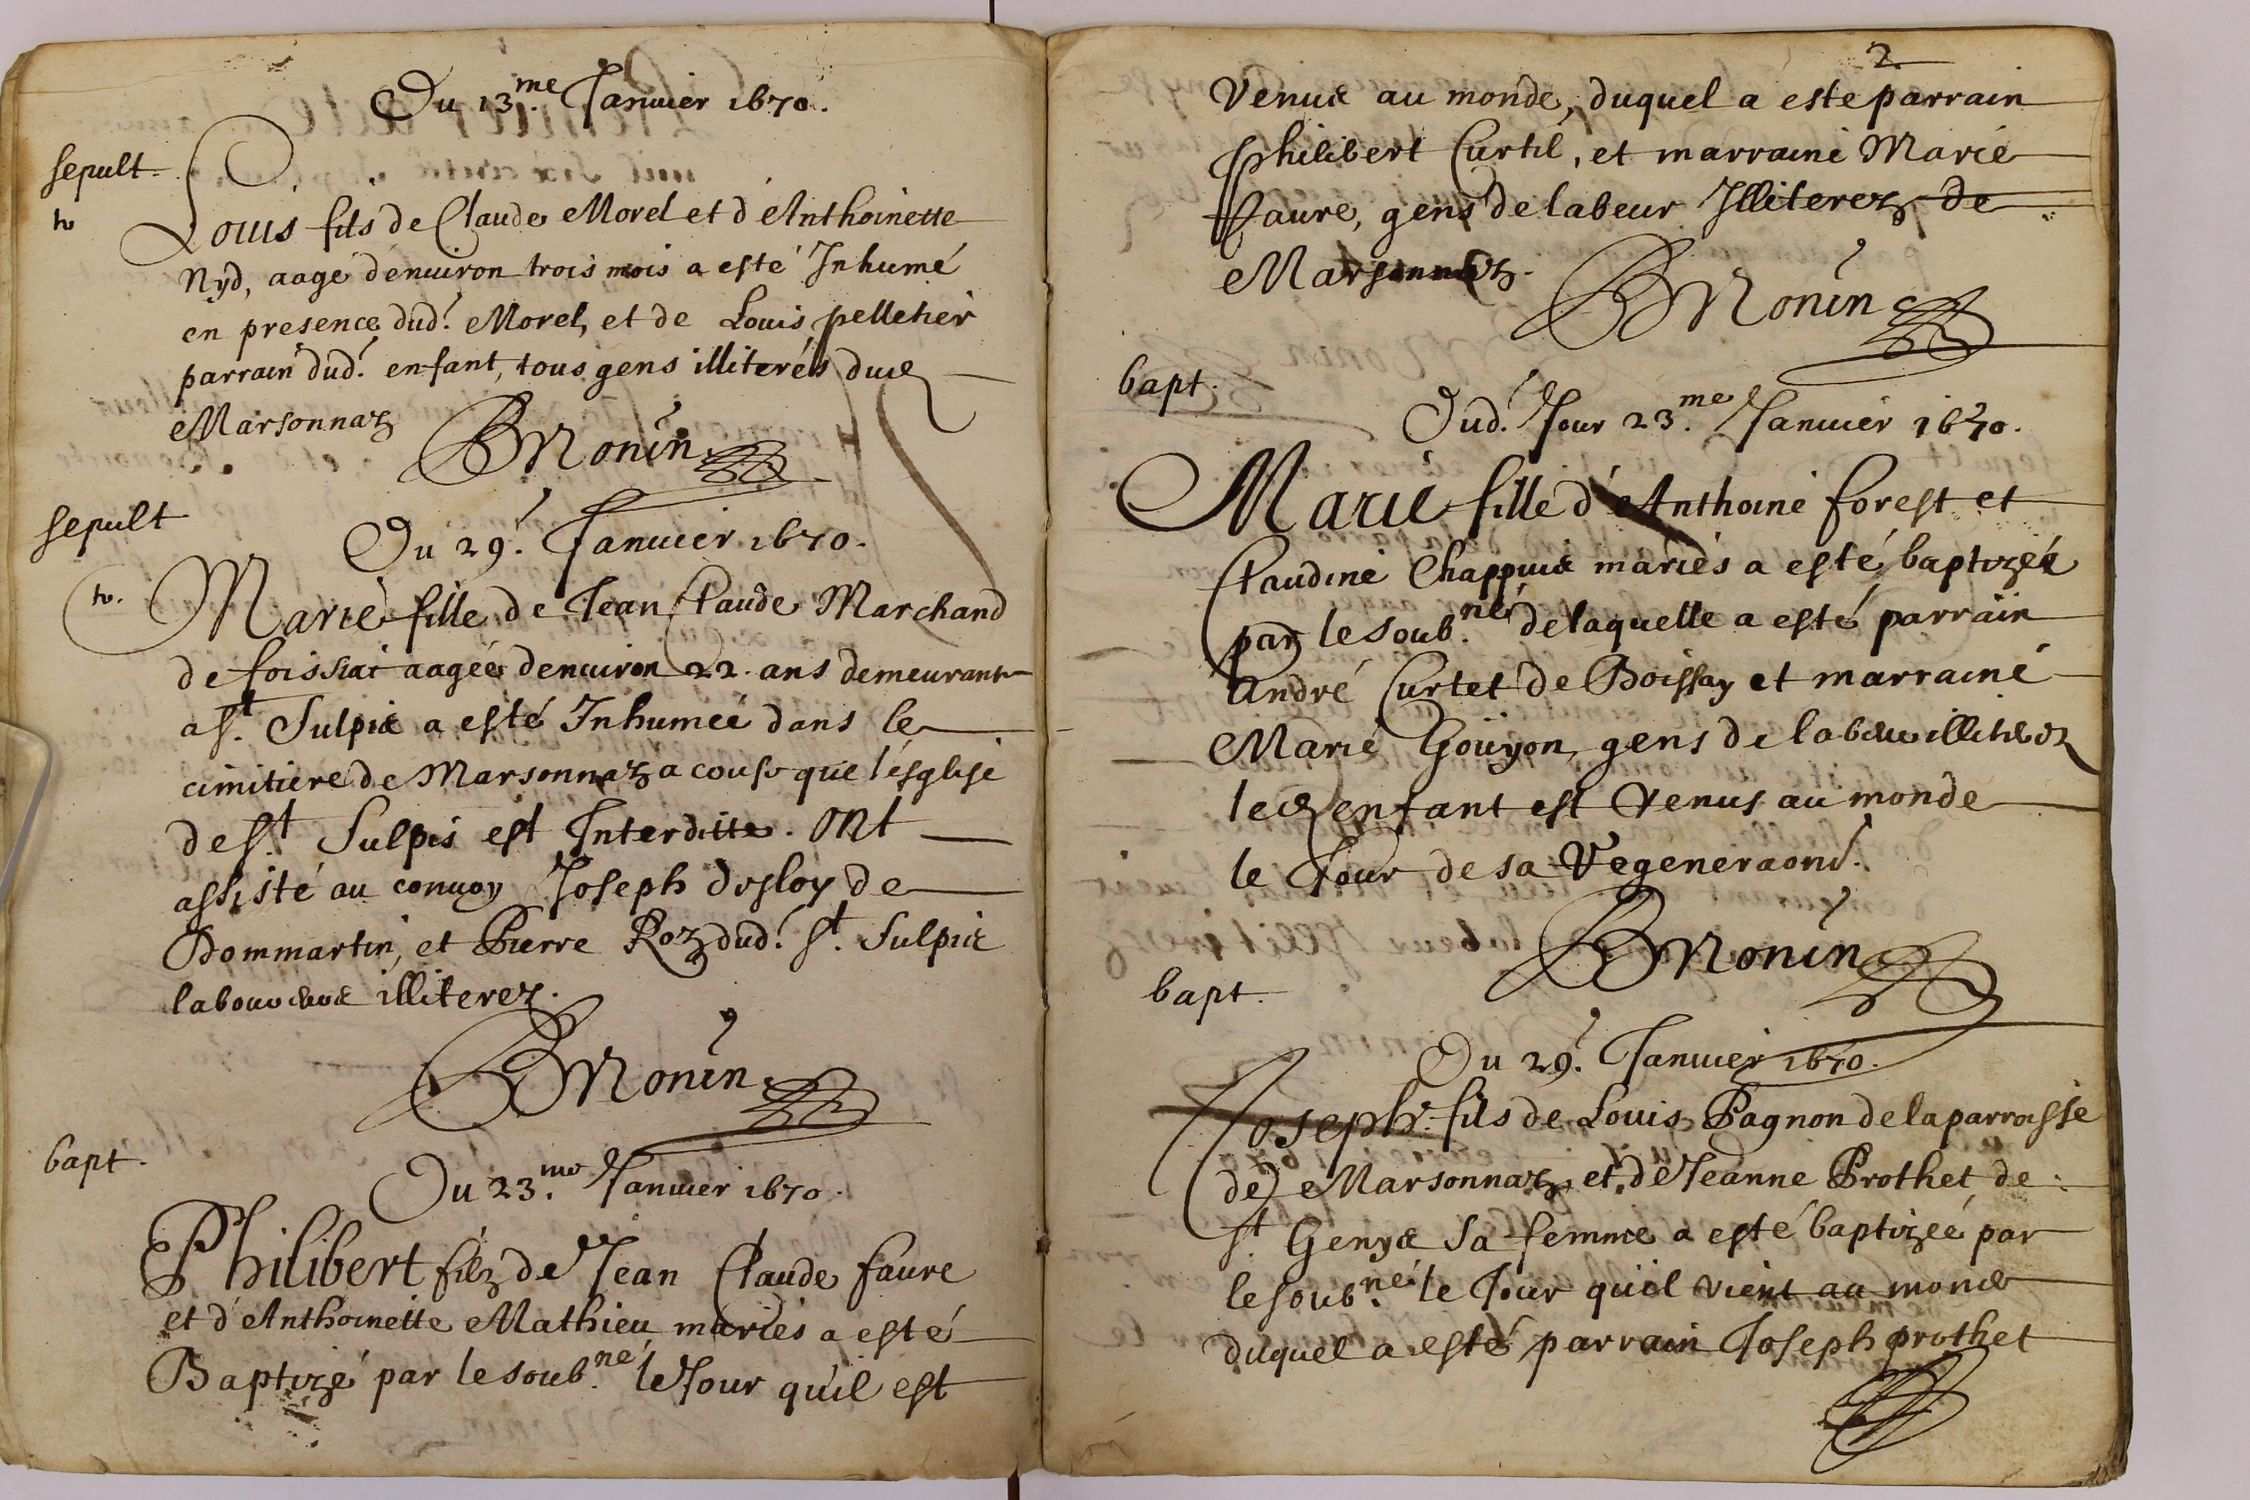 Du 13.me Januier 1670.
sepult.
Louis fils de Claude Morel et d'Anthoinette
Nyd, aagé denuiron trois mois a esté Inhumé
en presence dud.t Morel, et de Louis pelletier
parrain dud.t enfant, tous gens illiterés dud
Marsonnaz
BMonin
sepult
Du 29.e Januier 1670.
Marie fille de Jean Claude Marchand
de foissiat aagée denuiron 22. ans demeurant
a St. Sulpice a esté Inhumeé dans le
cimitiere de Marsonnaz a cause que l'esglise
de St. Sulpis est Interditte. Ont
assisté au conuoy Joseph desloy de
Dommartin, et Pierre Roz dud.t St. Sulpice
illiterez.
BMonin
bapt.
Du 23.me Januier 1670.
Philibert filz de Jean Claude faure
et d'Anthoinette Mathieu mariés a esté
Baptizé par le soub.né le Jour qu'il est
2
Venue au monde, duquel a esté parrain
Philibert Curtil, et marraine Marie
faure, gens de labeur Illiterez de
Marsonnaz.
BMonin
bapt.
Dud.t Jour 23.me Januier 1670.
Marie fille d'Anthoine forest et
Claudine Chappuis mariés a esté baptizée
par le soub.né de laquelle a esté parrain
André Curtet de Boissay et marraine
Marie Goüyon, gens de
led enfant est venus au monde
le Jour de sa
BMonin
bapt.
Du 29.e Januier 1670.
Joseph fils de Louis Pagnon de la parroisse
de Marsonnaz et de Jeanne Prothet de
St. Genys sa femme a esté baptizeé par
le soub.né le Jour quil vient au monde
duquel a esté parrain Joseph prothet